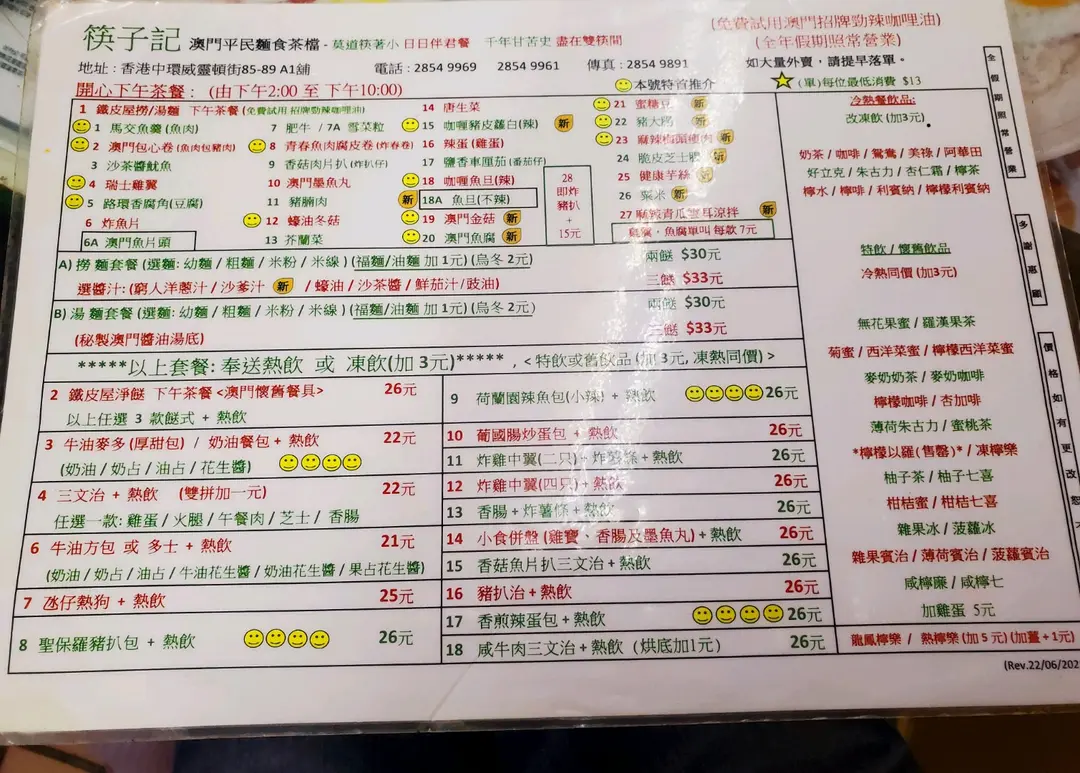 筷子記 澳門平民麵食茶檔 - 莫道筷著小 日日伴君餐 千年甘苦史 盡在雙筷間
(免費試用澳門招牌勁辣咖哩油)
(全年假期照常營業)
地址 : 香港中環威靈頓街85-89 A1舖 電話 : 2854 9969 2854 9961 傳真 : 2854 9891 如大量外賣 , 請提早落單 。
開心下午茶餐 : (由下午2:00 至 下午10:00) 本號特首推介 (單)每位最低消費 $13
1 鐵皮屋撈/湯麵 下午茶餐 (免費試用 招牌勁辣咖哩油)
1 馬交魚羹 (魚肉)
2 澳門包心卷 (魚肉包豬肉)
3 沙茶醬魷魚
4 瑞士雞翼
5 路環香腐角(豆腐)
6 炸魚片
6A 澳門魚片頭
7 肥牛 / 7A 雪菜粒
8 青春魚肉腐皮卷 (炸春卷)
9 香菇肉片扒 (炸扒仔)
10 澳門墨魚丸
11 豬腩肉
12 蠔油冬菇
13 芥蘭菜
14 唐生菜
15 咖喱豬皮蘿白(辣) 新
16 辣蛋 (雞蛋)
17 鹽香車厘茄 (番茄仔)
18 咖喱魚旦(辣)
新 18A 魚旦(不辣)
19 澳門金菇 新
20 澳門魚腐 新
28
即炸
豬扒
+
15元
21 蜜糖 新
22 豬大腸 新
23 麻辣梅頭瘦肉 新
24 脆皮芝士腸 新
25 健康芋絲 新
26 粟米 新
27 麻辣青瓜雲耳涼拌 新
魚腐單叫 每款 7元
A) 撈 麵套餐 (選麵: 幼麵 / 粗麵 / 米粉 / 米線 ) (福麵/油麵 加 1元) (烏冬 2元) 兩餸 $30元
選醬汁: (窮人洋蔥汁 / 沙爹汁 新 / 蠔油 / 沙茶醬 / 鮮茄汁/豉油) 三餸 $33元
B) 湯 麵套餐 (選麵: 幼麵 / 粗麵 / 米粉 / 米線 ) (福麵/油麵 加 1元) (烏冬 2元) 兩餸 $30元
(秘製澳門醬油湯底) 三餸 $33元
*****以上套餐: 奉送熱飲 或 凍飲(加 3元)***** , < 特飲或舊飲品 (加 3元, 凍熱同價) >
2 鐵皮屋淨餸 下午茶餐 <澳門懷舊餐具> 26元
以上任選 3 款餸式 + 熱飲
3 牛油麥多(厚甜包) / 奶油餐包 + 熱飲 22元
(奶油 / 奶占 / 油占 / 花生醬)
4 三文治 + 熱飲 (雙拼加一元) 22元
任選一款: 雞蛋 / 火腿 / 午餐肉 / 芝士 / 香腸
6 牛油方包 或 多士 + 熱飲 21元
(奶油 / 奶占 / 油占 / 牛油花生醬 / 奶油花生醬 / 果占花生醬)
7 氹仔熱狗 + 熱飲 25元
8 聖保羅豬扒包 + 熱飲 26元
9 荷蘭園辣魚包(小辣) + 熱飲 26元
10 葡國腸炒蛋包 + 熱飲 26元
11 炸雞中翼(二只)+炸薯條 + 熱飲 26元
12 炸雞中翼(四只)+ 熱飲 26元
13 香腸 + 炸薯條 + 熱飲 26元
14 小食併盤 (雞寶、香腸及墨魚丸) + 熱飲 26元
15 香菇魚片扒三文治 + 熱飲 26元
16 豬扒治 + 熱飲 26元
17 香煎辣蛋包 + 熱飲 26元
18 咸牛肉三文治 + 熱飲 (烘底加1元) 26元
冷熱餐飲品:
改凍飲(加3元)
奶茶 / 咖啡 / 鴛鴦 / 美祿 / 阿華田
好立克 / 朱古力 / 杏仁霜 / 檸茶
檸水 / 檸啡 / 利賓納 / 檸檬利賓納
特飲 / 懷舊飲品
冷熱同價 (加3元)
無花果蜜 / 羅漢果茶
菊蜜 / 西洋菜蜜 / 檸檬西洋菜蜜
麥奶奶茶 / 麥奶咖啡
檸檬咖啡 / 杏加啡
薄荷朱古力 / 蜜桃茶
*檸檬以羅(售罄)* / 凍檸樂
柚子茶 / 柚子七喜
柑桔蜜 / 柑桔七喜
雜果冰 / 菠蘿冰
雜果賓治 / 薄荷賓治 / 菠蘿賓治
咸檸廉 / 咸檸七
加雞蛋 5元
龍鳳檸樂 / 熱檸樂 (加 5 元) (加薑 + 1元)
全假期照常營業
多謝惠顧
價格如有更改
(Rev.22/06/202